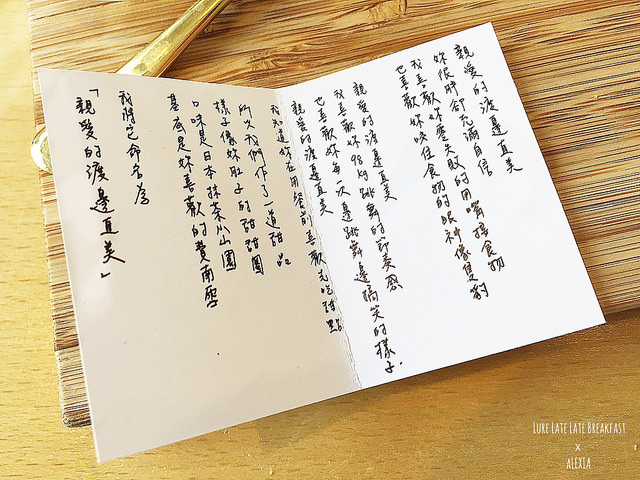 親愛的渡邊直美
妳很胖卻充滿自信
我喜歡妳愛失敗的用嘴接食物
也喜歡妳咬住食物的眼神像隻豹
親愛的渡邊直美
我喜歡妳跳舞的節奏感
也喜歡妳每次邊跳舞邊搞笑的樣子
親愛的渡邊直美
我知道妳在用餐前喜歡先吃甜點
所以我們作了一道甜品
樣子像妳肚子的甜甜圈
口味是日本抹茶小山園
基底是妳喜歡的費南雪
我將它命名為
「親愛的渡邊直美」
LURE LATE LATE BREAKFAST
x
ALEXIA